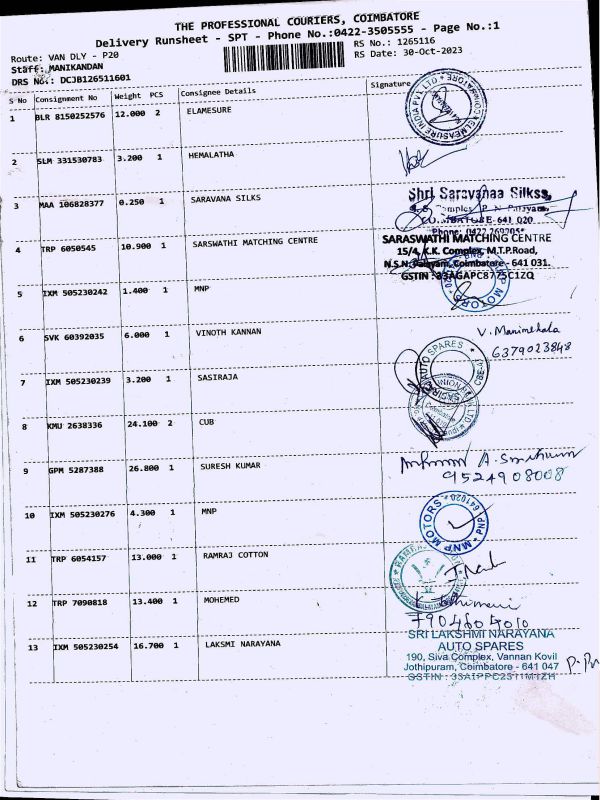 THE PROFESSIONAL COURIERS, COIMBATORE
Delivery Runsheet - SPT - Phone No.:0422-3505555 - Page No.:1
Route: VAN DLY - P20
RS No.: 1265116
Staff: MANIKANDAN
RS Date: 30-Oct-2023
DRS No.: DCJB126511601
S No Consignment No Weight PCS Consignee Details Signature
1 BLR 8150252576 12.000 2 ELAMESURE
ELMEASURE INDIA PVT LTD COIMBATORE
2 SLM 331530783 3.200 1 HEMALATHA
3 MAA 106828377 0.250 1 SARAVANA SILKS
Shri Saravanaa Silkss,
COIMBATORE-641 020
4 TRP 6050545 10.900 1 SARSWATHI MATCHING CENTRE
SARASWATHI MATCHING CENTRE
15/4, K.K. Complex, M.T.P.Road,
N.S.N. Palayam, Coimbatore - 641 031.
GSTIN : 33AGAPC8775C1ZQ
5 IXM 505230242 1.400 1 MNP
MNP MOTORS
6 SVK 60392035 6.000 1 VINOTH KANNAN
V. Manimehala
6379023848
7 IXM 505230239 3.200 1 SASIRAJA
AUTO SPARES
8 KMU 2638336 24.100 2 CUB
9 GPM 5287388 26.800 1 SURESH KUMAR
9524908008
10 IXM 505230276 4.300 1 MNP
MNP MOTORS * PNP 641020
11 TRP 6054157 13.000 1 RAMRAJ COTTON
12 TRP 7090818 13.400 1 MOHEMED
7904604010
13 IXM 505230254 16.700 1 LAKSMI NARAYANA
SRI LAKSHMI NARAYANA
AUTO SPARES
190, Siva Complex, Vannan Kovil
Jothipuram, Coimbatore - 641 047